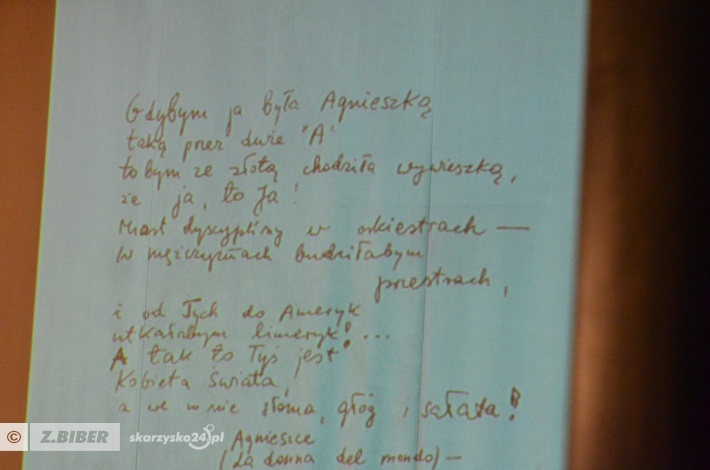 Gdybym ja była Agnieszką
taką przez duże "A"
to bym ze złotą chodziła wywieszką,
że ja, to Ja!
Miast dyscypliny w orkiestrach —
w mężczyznach budziłabym
przestrach,
i od Tych do Ameryk
utkałabym limeryk! ...
A tak to Tyś jest
Kobieta Świata,
a we mnie słoma, głóg i sałata!
Agniesice
(La donna del mondo) —
© Z.BIBER skarzysko24.pl